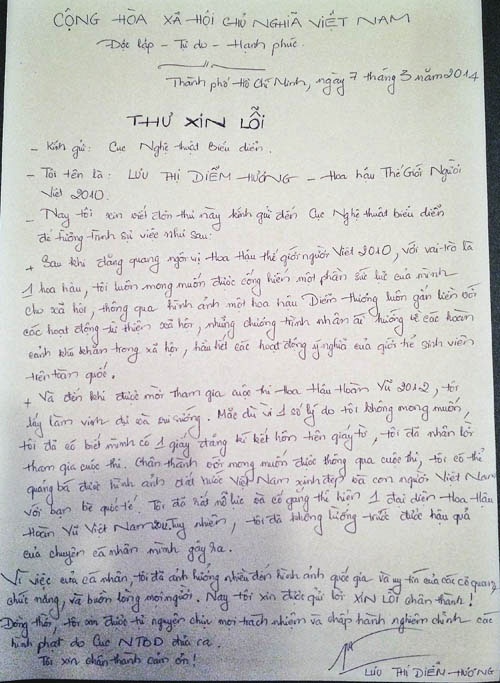 CỘNG HÒA XÃ HỘI CHỦ NGHĨA VIỆT NAM
Độc lập - Tự do - Hạnh phúc.
Thành phố Hồ Chí Minh, ngày 7 tháng 3 năm 2014
THƯ XIN LỖI
- Kính gửi: Cục Nghệ thuật Biểu diễn.
- Tôi tên là: LƯU THỊ DIỄM HƯƠNG - Hoa hậu Thế Giới Người
Việt 2010.
- Nay tôi xin viết đơn thư này kính gửi đến Cục Nghệ thuật biểu diễn
để tường trình sự việc như sau:
+ Sau khi đăng quang ngôi vị Hoa Hậu thế giới người Việt 2010, với vai trò là
1 hoa hậu, tôi luôn mong muốn được cống hiến một phần sức lực của mình
cho xã hội, thông qua hình ảnh một hoa hậu Diễm Hương luôn gắn liền với
các hoạt động từ thiện xã hội, những chương trình nhân ái hướng về các hoàn
cảnh khó khăn trong xã hội, hầu hết các hoạt động ý nghĩa của giới trẻ sinh viên
trên toàn quốc.
+ Và đến khi được mời tham gia cuộc thi Hoa Hậu Hoàn Vũ 2012, tôi
lấy làm vinh dự và vui sướng. Mặc dù vì 1 số lý do tôi không mong muốn,
tôi đã có biết mình có 1 giấy đăng kí kết hôn trên giấy tờ, tôi đã nhận lời
tham gia cuộc thi. Chân thành với mong muốn được thông qua cuộc thi, tôi có thể
quảng bá được hình ảnh đất nước Việt Nam xinh đẹp và con người Việt Nam
với bạn bè quốc tế. Tôi đã rất nỗ lực và cố gắng thể hiện 1 đại diện Hoa Hậu
Hoàn Vũ Việt Nam 2012. Tuy nhiên, tôi đã không lường trước được hậu quả
của chuyện cá nhân mình gây ra.
Vì việc của cá nhân, tôi đã ảnh hưởng nhiều đến hình ảnh quốc gia và uy tín của các cơ quan
chức năng, và buồn lòng mọi người. Nay tôi xin được gửi lời XIN LỖI chân thành!
Đồng thời, tôi xin được tự nguyện chịu mọi trách nhiệm và chấp hành nghiêm chỉnh các
hình phạt do Cục NTBD đưa ra.
Tôi xin chân thành cảm ơn!
LƯU THỊ DIỄM HƯƠNG